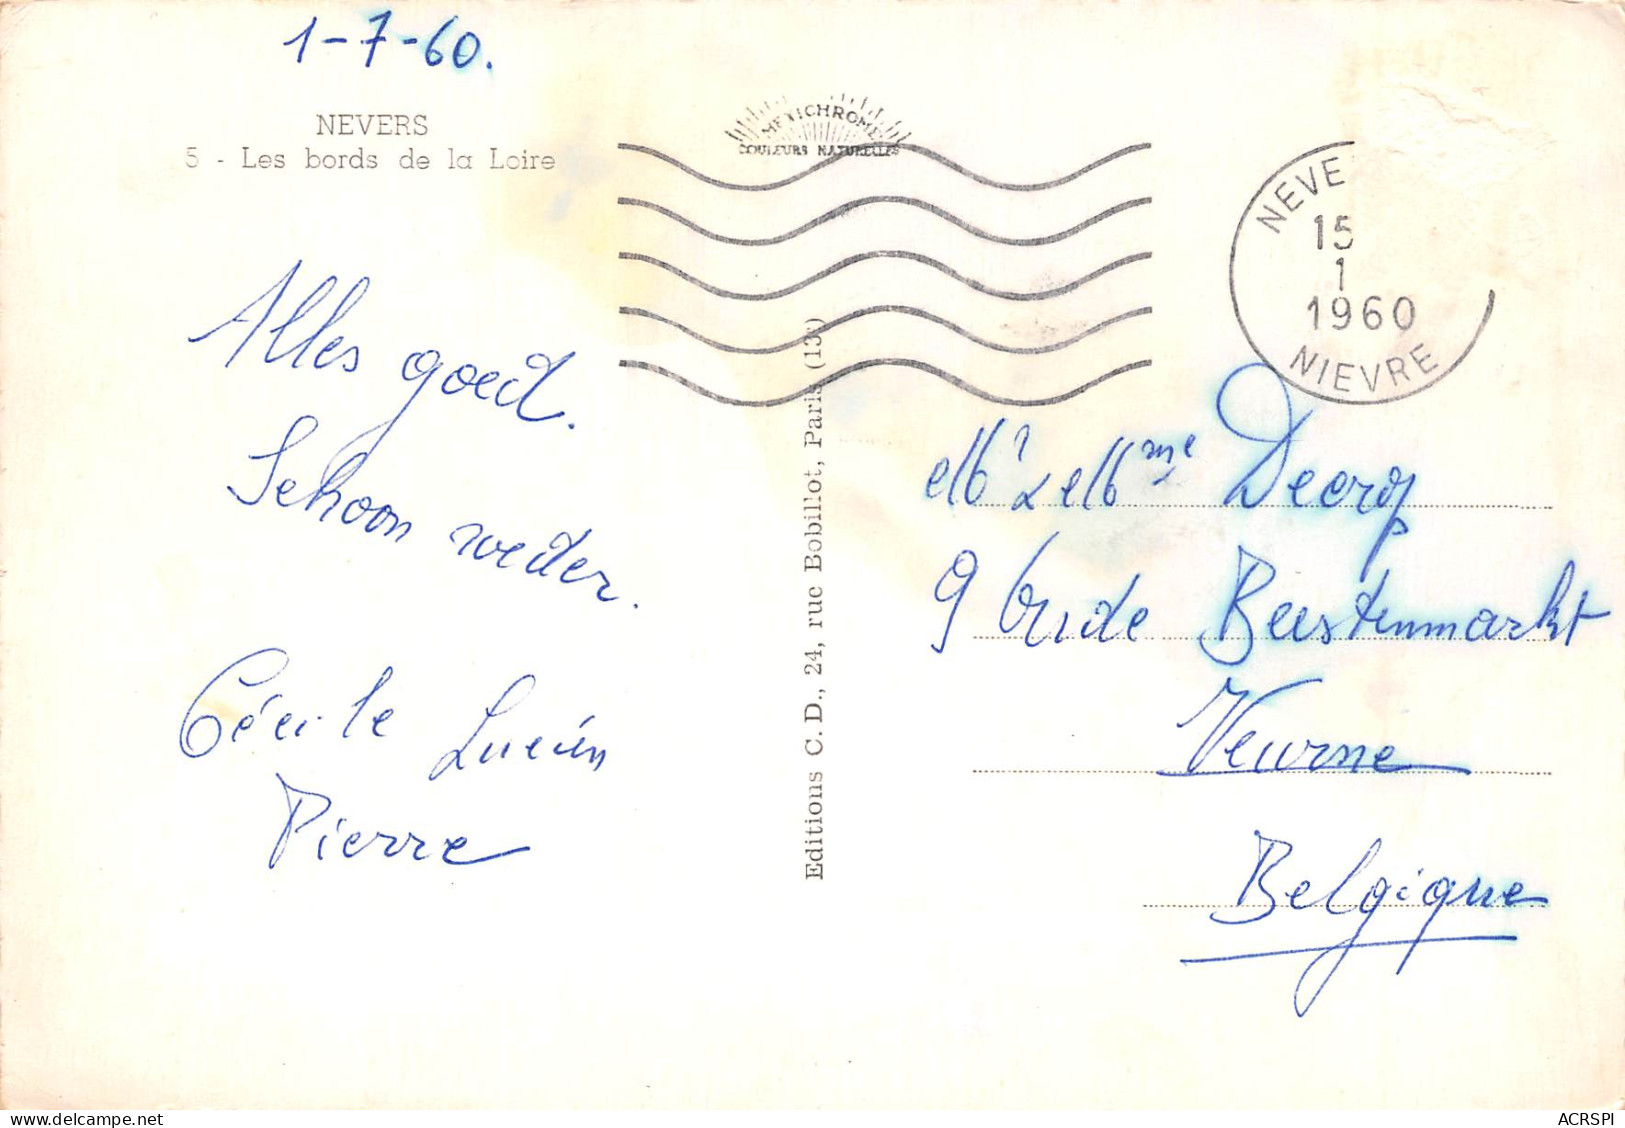 1-7-60.
NEVERS
5 - Les bords de la Loire
MEXICHROME
COULEURS NATURELLES
NEVE
15
1
1960
NIEVRE
Alles goed.
Schoon weder.
Cécile Lucien
Pierre
Editions C. D., 24, rue Bobillot, Paris (13e)
Mr & Mme Decrop
9 Oude Beestenmarkt
Veurne
Belgique
delcampe.net
ACRSPI